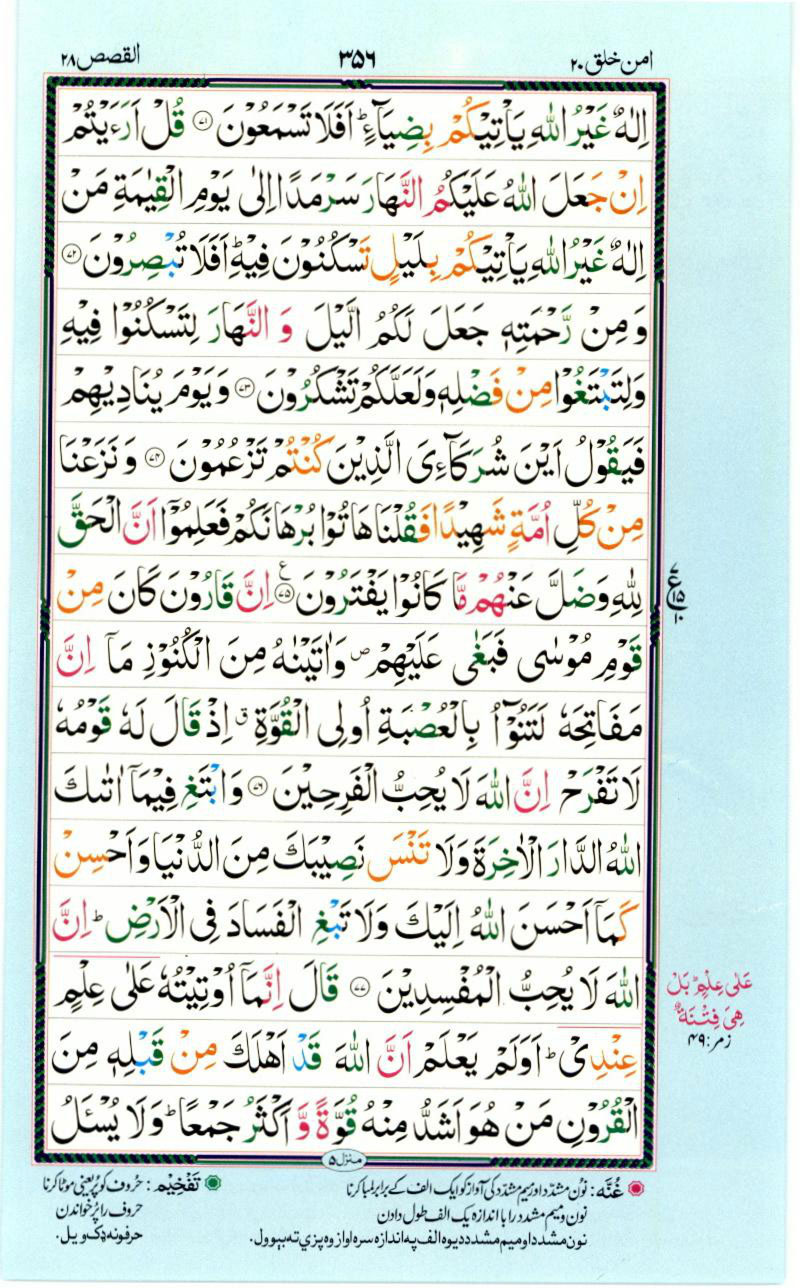 امن خلق ۲۰
۳۵۶
القصص ۲۸
اِلٰهٌ غَيْرُ اللّٰهِ يَاْتِيْكُمْ بِضِيَآءٍ ؕ اَفَلَا تَسْمَعُوْنَ ۷۱ قُلْ اَرَءَيْتُمْ
اِنْ جَعَلَ اللّٰهُ عَلَيْكُمُ النَّهَارَ سَرْمَدًا اِلٰى يَوْمِ الْقِيٰمَةِ مَنْ
اِلٰهٌ غَيْرُ اللّٰهِ يَاْتِيْكُمْ بِلَيْلٍ تَسْكُنُوْنَ فِيْهِ ؕ اَفَلَا تُبْصِرُوْنَ ۷۲
وَ مِنْ رَّحْمَتِهٖ جَعَلَ لَكُمُ الَّيْلَ وَ النَّهَارَ لِتَسْكُنُوْا فِيْهِ
وَلِتَبْتَغُوْا مِنْ فَضْلِهٖ وَلَعَلَّكُمْ تَشْكُرُوْنَ ۷۳ وَيَوْمَ يُنَادِيْهِمْ
فَيَقُوْلُ اَيْنَ شُرَكَآءِىَ الَّذِيْنَ كُنْتُمْ تَزْعُمُوْنَ ۷۴ وَ نَزَعْنَا
مِنْ كُلِّ اُمَّةٍ شَهِيْدًا فَقُلْنَا هَاتُوْا بُرْهَانَكُمْ فَعَلِمُوْۤا اَنَّ الْحَقَّ
لِلّٰهِ وَضَلَّ عَنْهُمْ مَّا كَانُوْا يَفْتَرُوْنَ ۷۵ ع اِنَّ قَارُوْنَ كَانَ مِنْ
۷ ع ۱۵ ۱۰
قَوْمِ مُوْسٰى فَبَغٰى عَلَيْهِمْ ص وَاٰتَيْنٰهُ مِنَ الْكُنُوْزِ مَاۤ اِنَّ
مَفَاتِحَهٗ لَتَنُوْٓاُ بِالْعُصْبَةِ اُولِى الْقُوَّةِ ق اِذْ قَالَ لَهٗ قَوْمُهٗ
لَا تَفْرَحْ اِنَّ اللّٰهَ لَا يُحِبُّ الْفَرِحِيْنَ ۷۶ وَابْتَغِ فِيْمَاۤ اٰتٰىكَ
اللّٰهُ الدَّارَ الْاٰخِرَةَ وَلَا تَنْسَ نَصِيْبَكَ مِنَ الدُّنْيَا وَاَحْسِنْ
كَمَاۤ اَحْسَنَ اللّٰهُ اِلَيْكَ وَلَا تَبْغِ الْفَسَادَ فِى الْاَرْضِ ؕ اِنَّ
اللّٰهَ لَا يُحِبُّ الْمُفْسِدِيْنَ ۷۷ قَالَ اِنَّمَاۤ اُوْتِيْتُهٗ عَلٰى عِلْمٍ
عَلٰى عِلْمٍ ؕ بَلْ
هِىَ فِتْنَةٌ
زمر: ۴۹
عِنْدِىْ ؕ اَوَلَمْ يَعْلَمْ اَنَّ اللّٰهَ قَدْ اَهْلَكَ مِنْ قَبْلِهٖ مِنَ
الْقُرُوْنِ مَنْ هُوَ اَشَدُّ مِنْهُ قُوَّةً وَّ اَكْثَرُ جَمْعًا ؕ وَلَا يُسْئَلُ
منزل ۵
غُنَّه: نون مشدّد اور میم مشدّد کی آواز کو ایک الف کے برابر لمبا کرنا
نون و میم مشدد را با اندازہ یک الف طول دادن
نون مشدد او میم مشدد دیوہ الف په اندازه سره اواز وه پزي ته بېوول.
تَفْخِيْم: حُروف کو پُر یعنی موٹا کرنا
حروف را پُر خواندن
حرفونه ډک ویل.